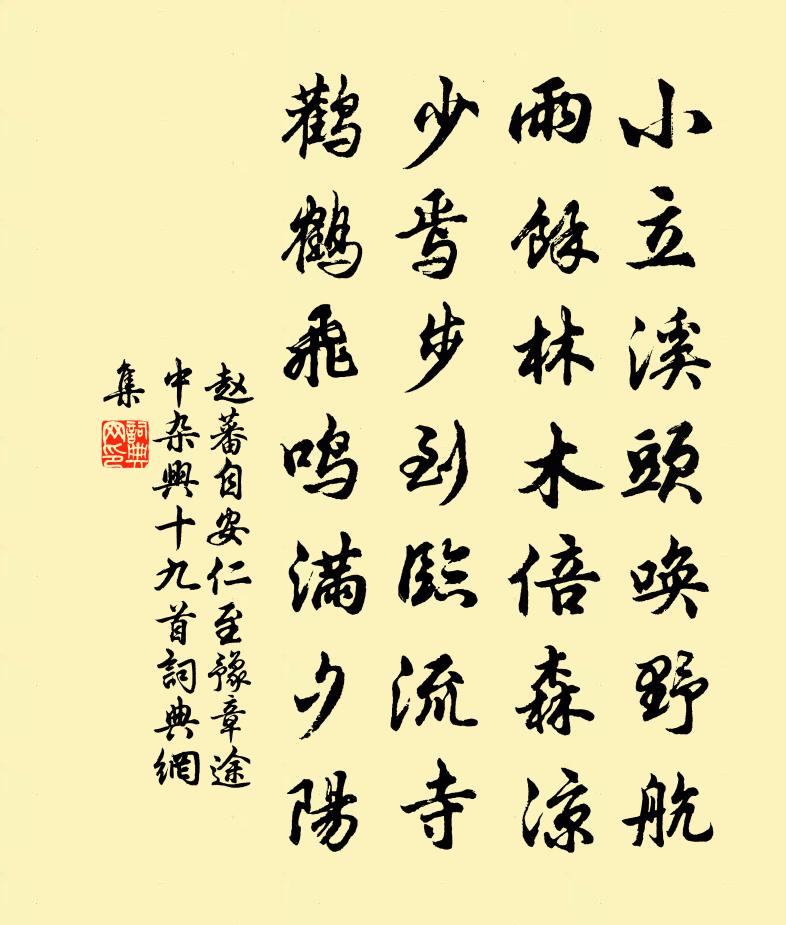 小立溪頭喚野航
雨餘林木倍森涼
少焉步到臨流寺
鸛鶴飛鳴滿夕陽
赵蕃自安仁至豫章途
中杂興十九首詞典網
集
詞典
网印